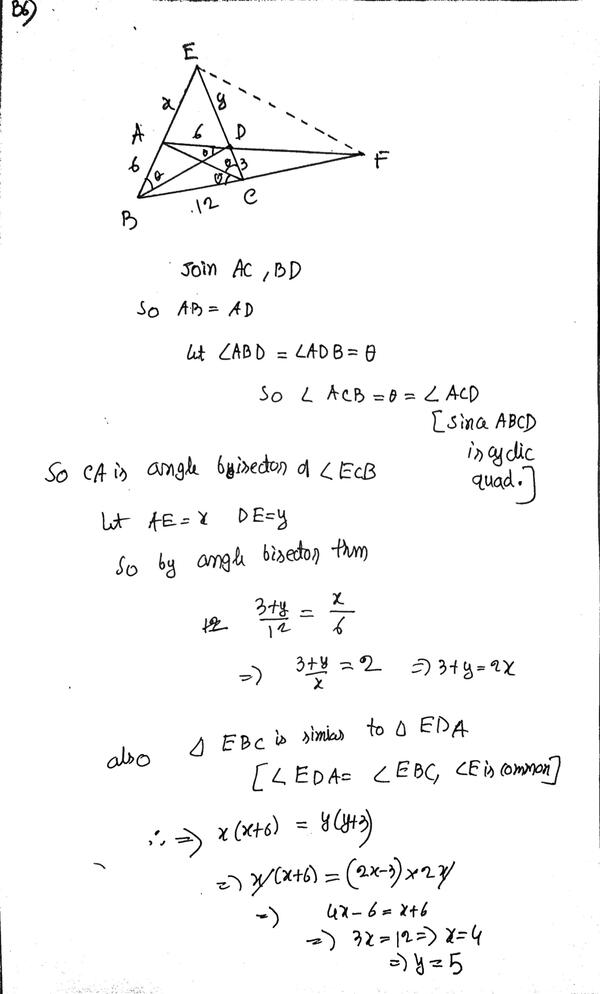 B6)
E
x y
A 6 D
F
6 θ θ θ 3
θ
B 12 C
Join AC, BD
So AB = AD
Let ∠ABD = ∠ADB = θ
So ∠ ACB = θ = ∠ ACD
[Since ABCD
is cyclic
quad.]
So CA is angle bisector of ∠ECB
Let AE = x DE = y
So by angle bisector thm
3+y/12 = x/6
=> 3+y/x = 2 => 3+y = 2x
also Δ EBC is similar to Δ EDA
[∠EDA = ∠EBC, ∠E is common]
∴ => x(x+6) = y(y+3)
=> x(x+6) = (2x-3)×2x
=> 4x-6 = x+6
=> 3x = 12 => x = 4
=> y = 5